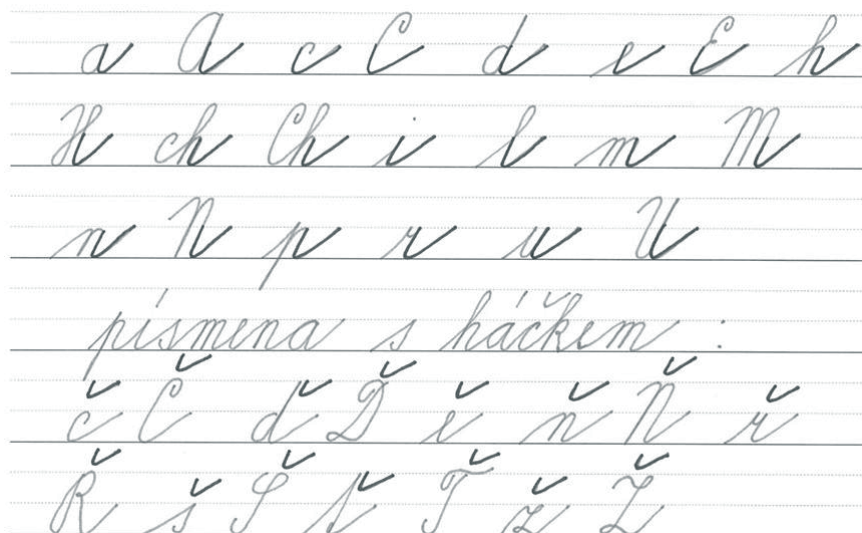 a A c C d e E h
H ch Ch i l m M
n N p r u U
písmena s háčkem :
č Č ď Ď ě ň Ň ř
Ř š Š ť Ť ž Ž